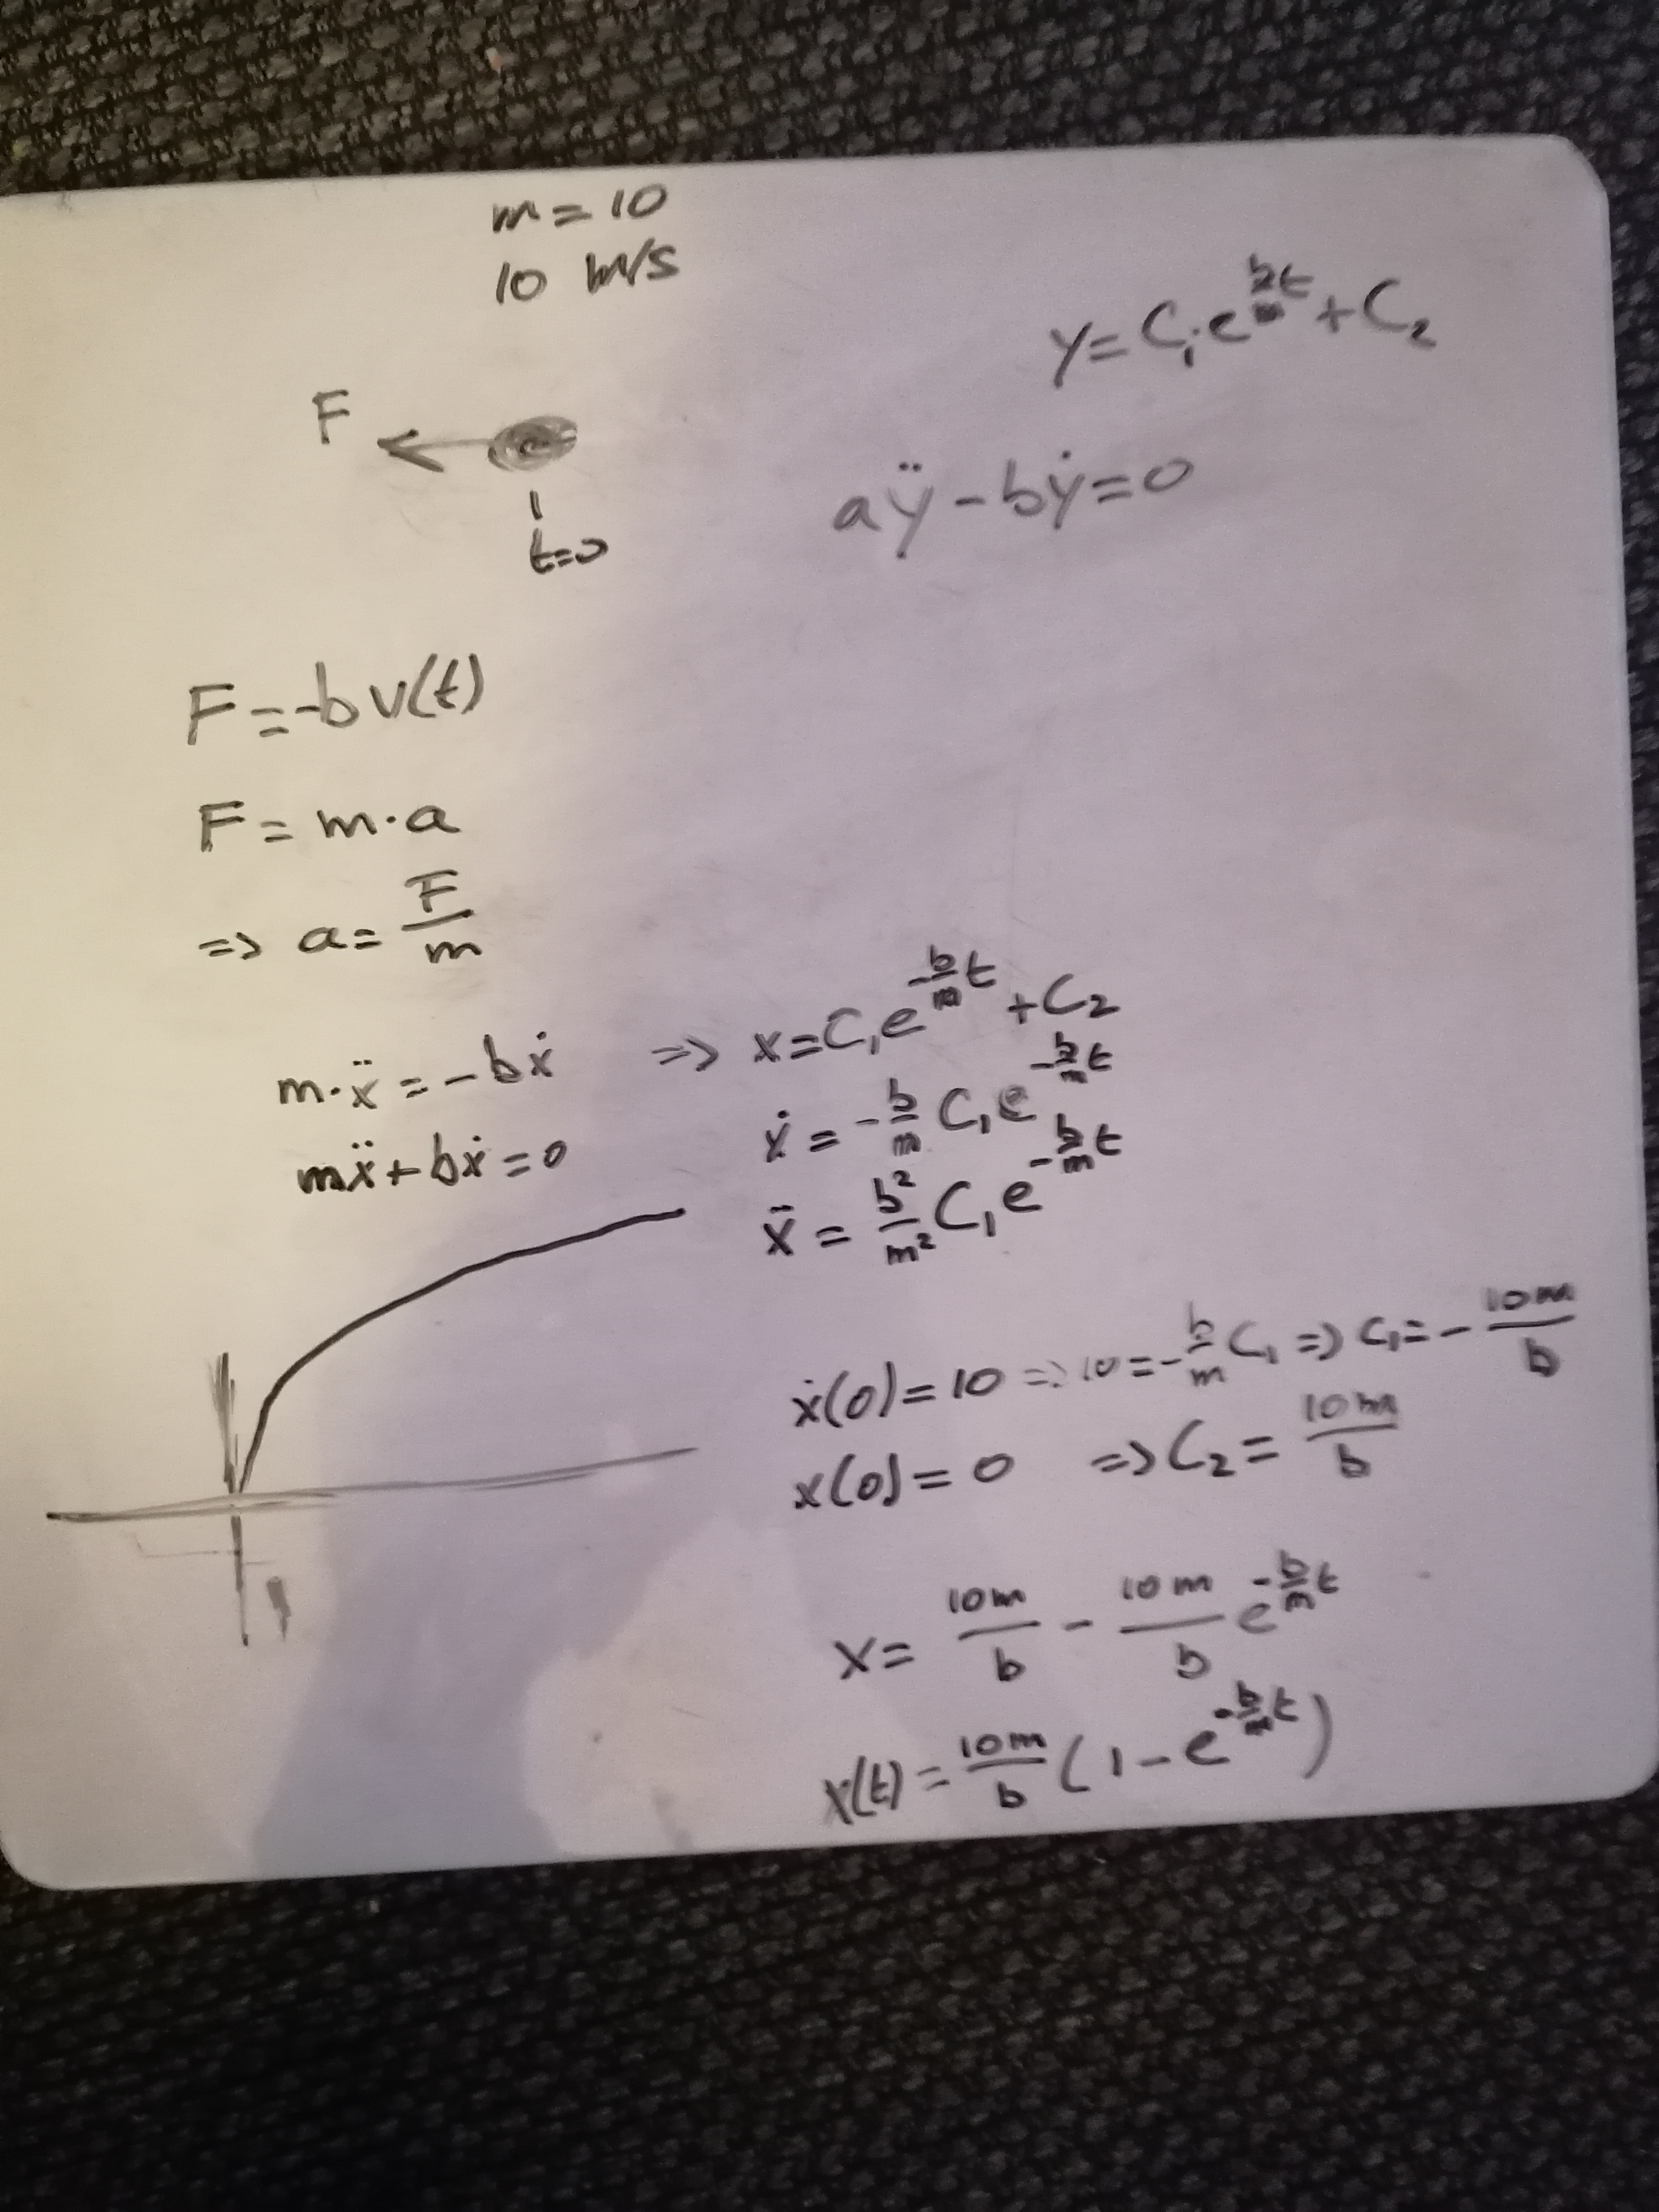 m = 10
10 m/s
y = C₁·e^(b/m t) + C₂
F
t=0
aÿ - bẏ = 0
F = -b v(t)
F = m·a
=> a = F/m
m·ẍ = -bẋ => x = C₁e^(-b/m t) + C₂
ẋ = -b/m C₁e^(-b/m t)
mẍ + bẋ = 0
ẍ = b²/m² C₁e^(-b/m t)
ẋ(0) = 10 => 10 = -b/m C₁ => C₁ = - 10m/b
x(0) = 0 => C₂ = 10m/b
x = 10m/b - 10m/b e^(-b/m t)
x(t) = 10m/b (1 - e^(-b/m t))